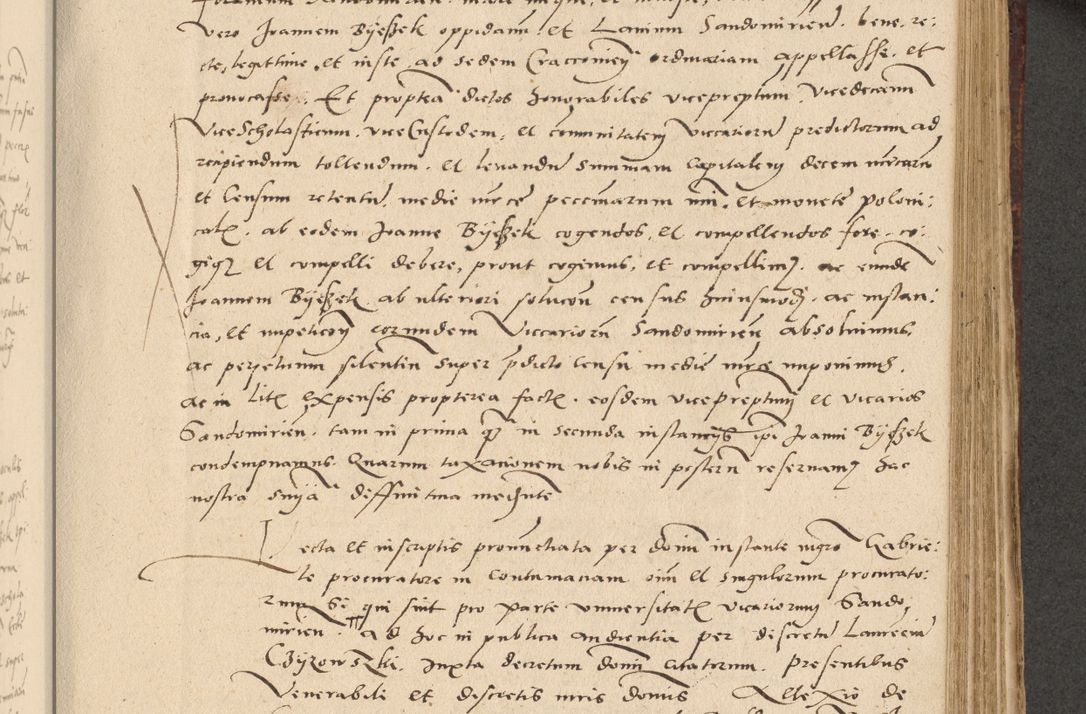 vero Joannem Byeszek oppidanum et Lanium Sandomirien. bene, re:
cte, legittime, et iuste, ad sedem Cracovien ordinariam appellasse, et
provocasse. Et propterea dictos honorabiles vicepreptum, vicedecanum
ViceScholasticum, viceCustodem, et comunitatem viccariorum predictorum ad
recipiendum tollendum. et levandum summam capitalem decem marcarum
et Censum retentum medie marce pecuniarum et monete Poloni:
calis, ab eodem Joanne Byeszek cogendos, et compellendos fore, co:
gique et compelli debere, prout cogimus, et compellimus. ac eundem
Joannem Byeszek, ab ulteriori solucione census huiusmodi. ac instan:
cia, et impeticione eorundem Viccariorum Sandomirien absolvimus,
ac perpetuum silentium super predicto censu medie marce imponimus.
ac in litis expensis propterea factis. eosdem vicepreptum et vicarios
Sandomirien. tam in prima quam in secunda instancys ipsi Joanni Byeszek
condempnamus. Quarum taxacionem nobis in posterum reservamus hac
nostra sentencia diffinitiva mediante
Lecta et inscriptis pronunctiata per dominum instante magistro Gabrie:
le procuratore in contumaciam omnium et singulorum procurato:
rum si qui sint pro parte universitatis vicariorum Sando
mirien. ad hoc in publica audientia per discretum Laurencium
Czyzowszki. Juxta decretum domini citatorum. Presentibus
Venerabile et discretis viris dominis Allexio de